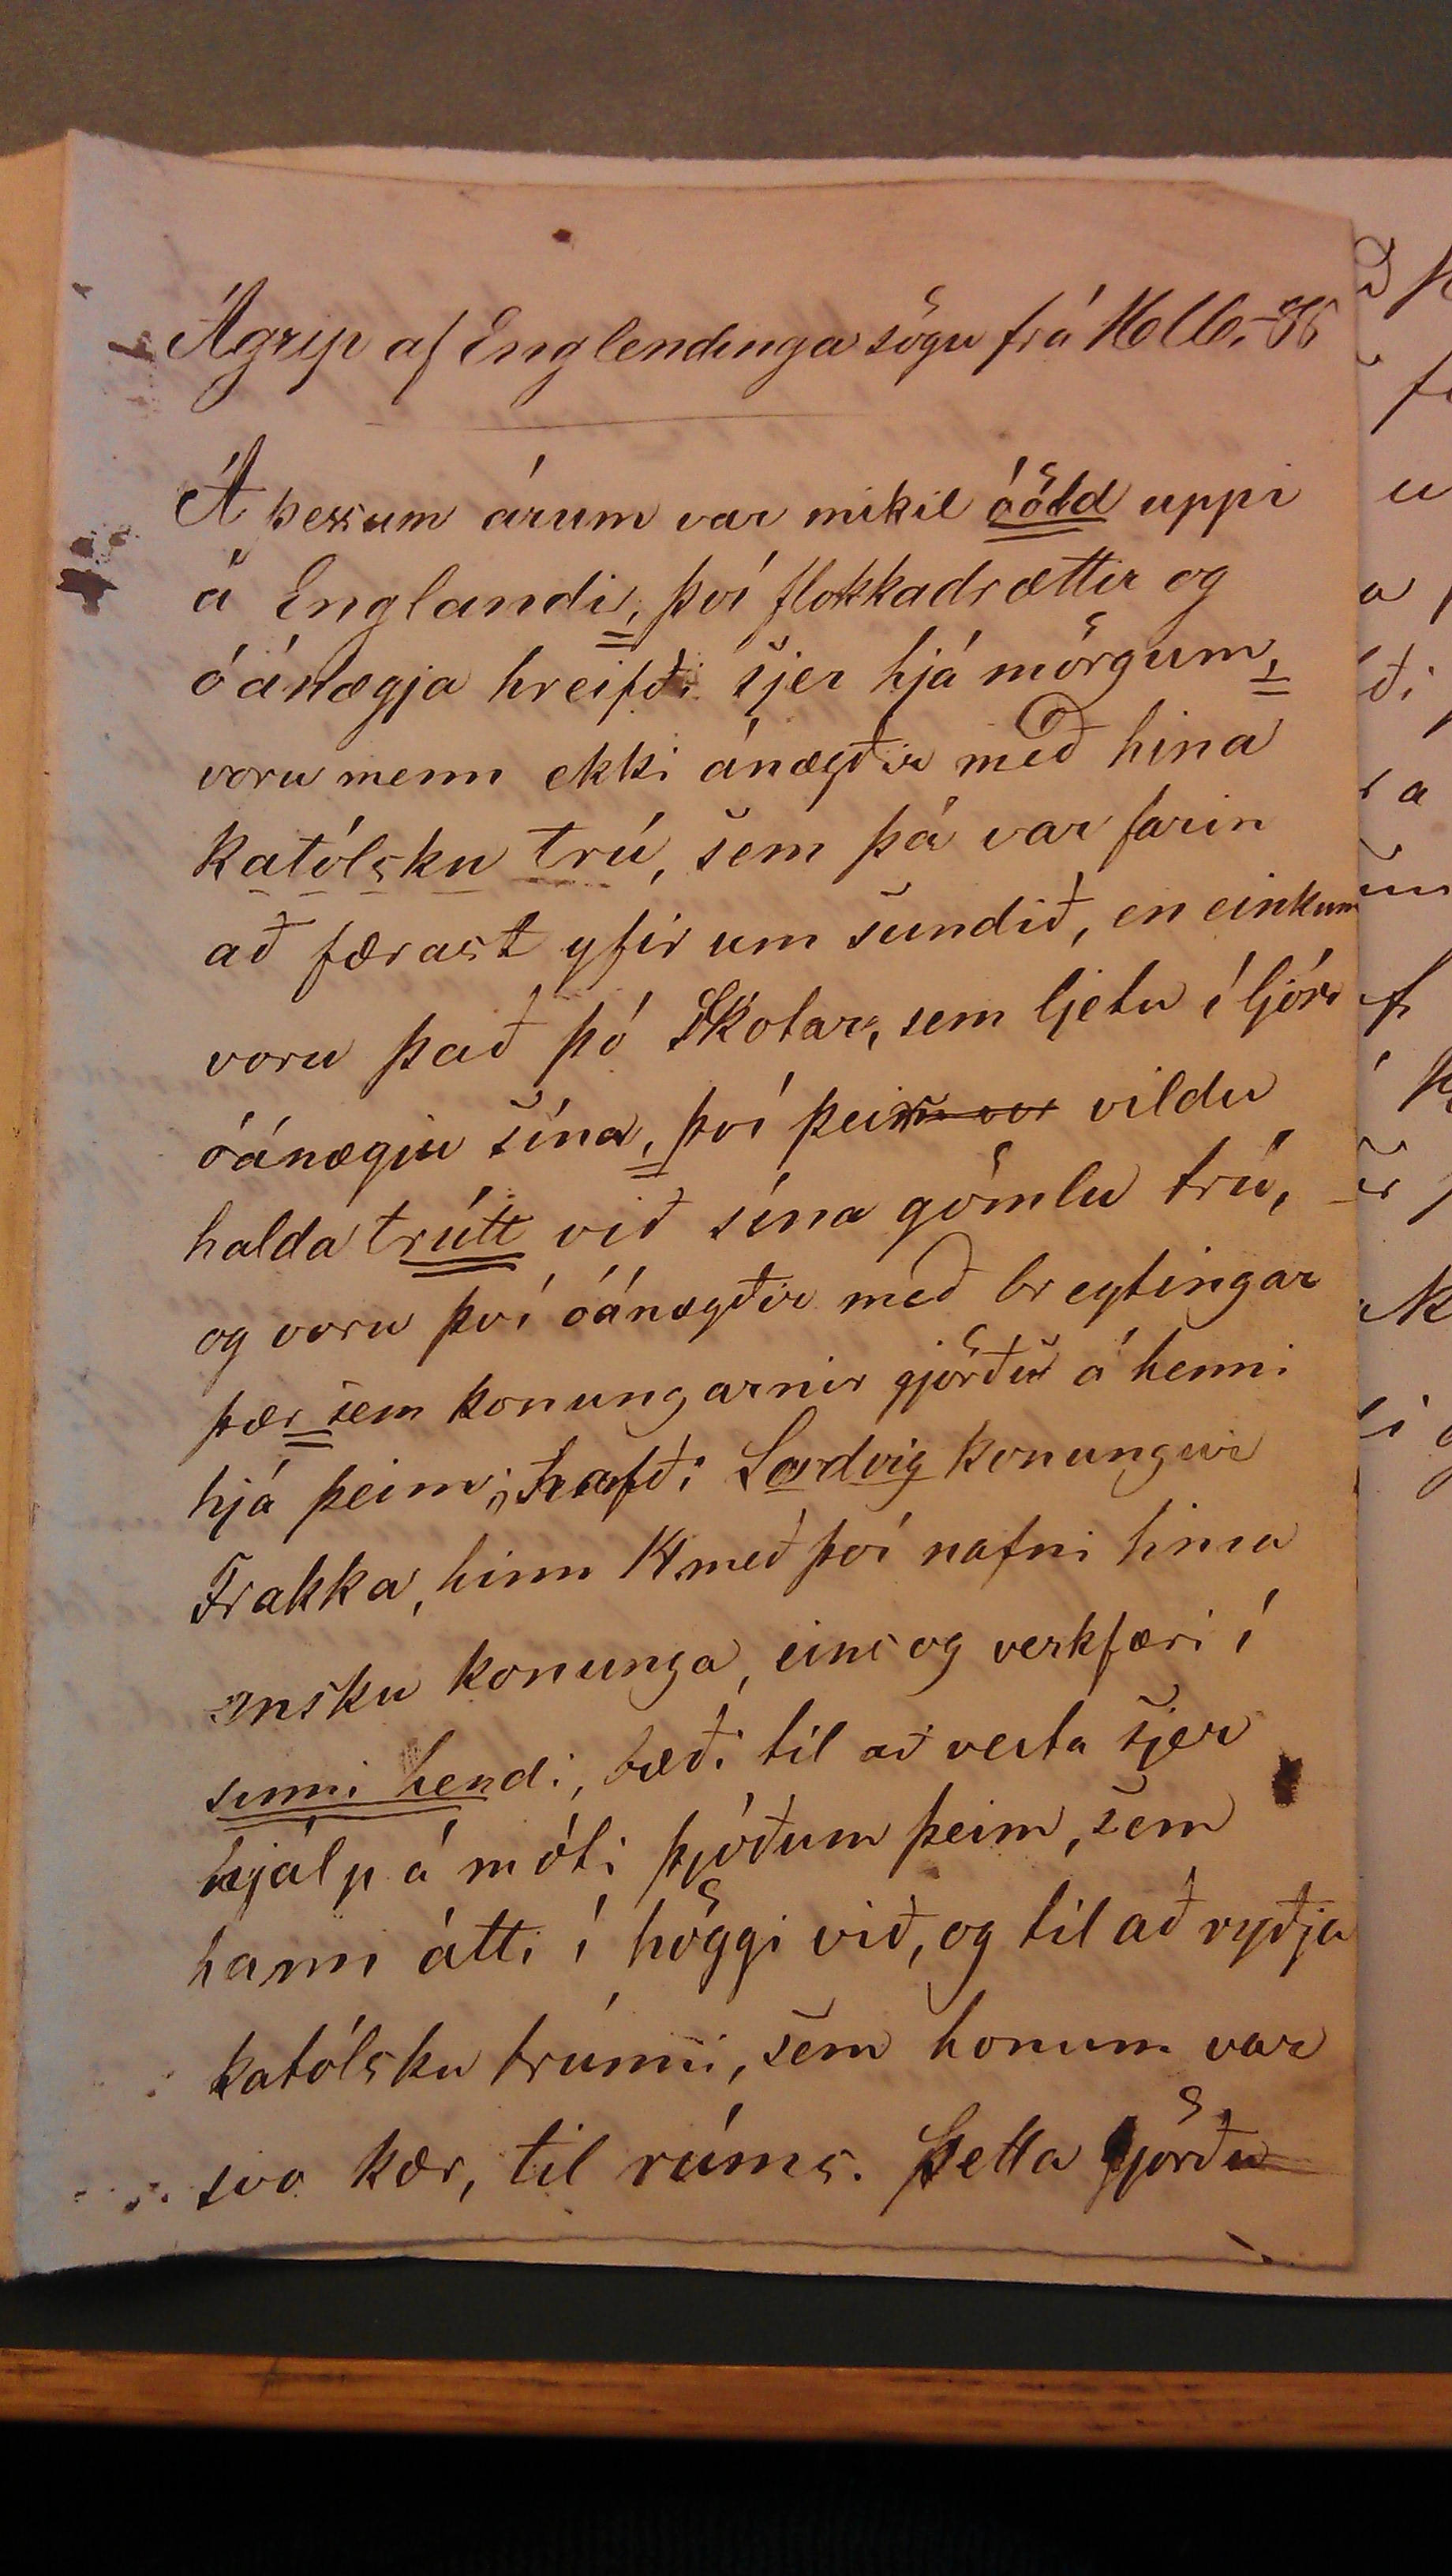 Ágrip af Englendinga sögu frá
Á þessum árum var mikil óöld uppi
á Englandi, því flokkadrættir og
óánægja hreifði sjer hjá mörgum,
voru menn ekki ánægðir með hina
katólsku trú, sem þá var farin
að færast yfir um sundið, en einkum
voru það þó Skotar, sem ljetu í ljósi
óánægju sína, því þeim var vildu
halda trútt við sína gömlu trú,
og voru því óánægðir með breytingar
þær sem konungarnir gjörðu á henni
hjá þeim; hafði Lodvig konungur
Frakka, hinn 14 með því nafni hina
ensku konunga, eins og verkfæri í
sinni hendi, bæði til að veita sjer
hjálp á móti þjóðum þeim, sem
hann átti í höggi við, og til að ryðja
katólsku trúnni, sem honum var
svo kær, til rúms. Þetta gjörðu